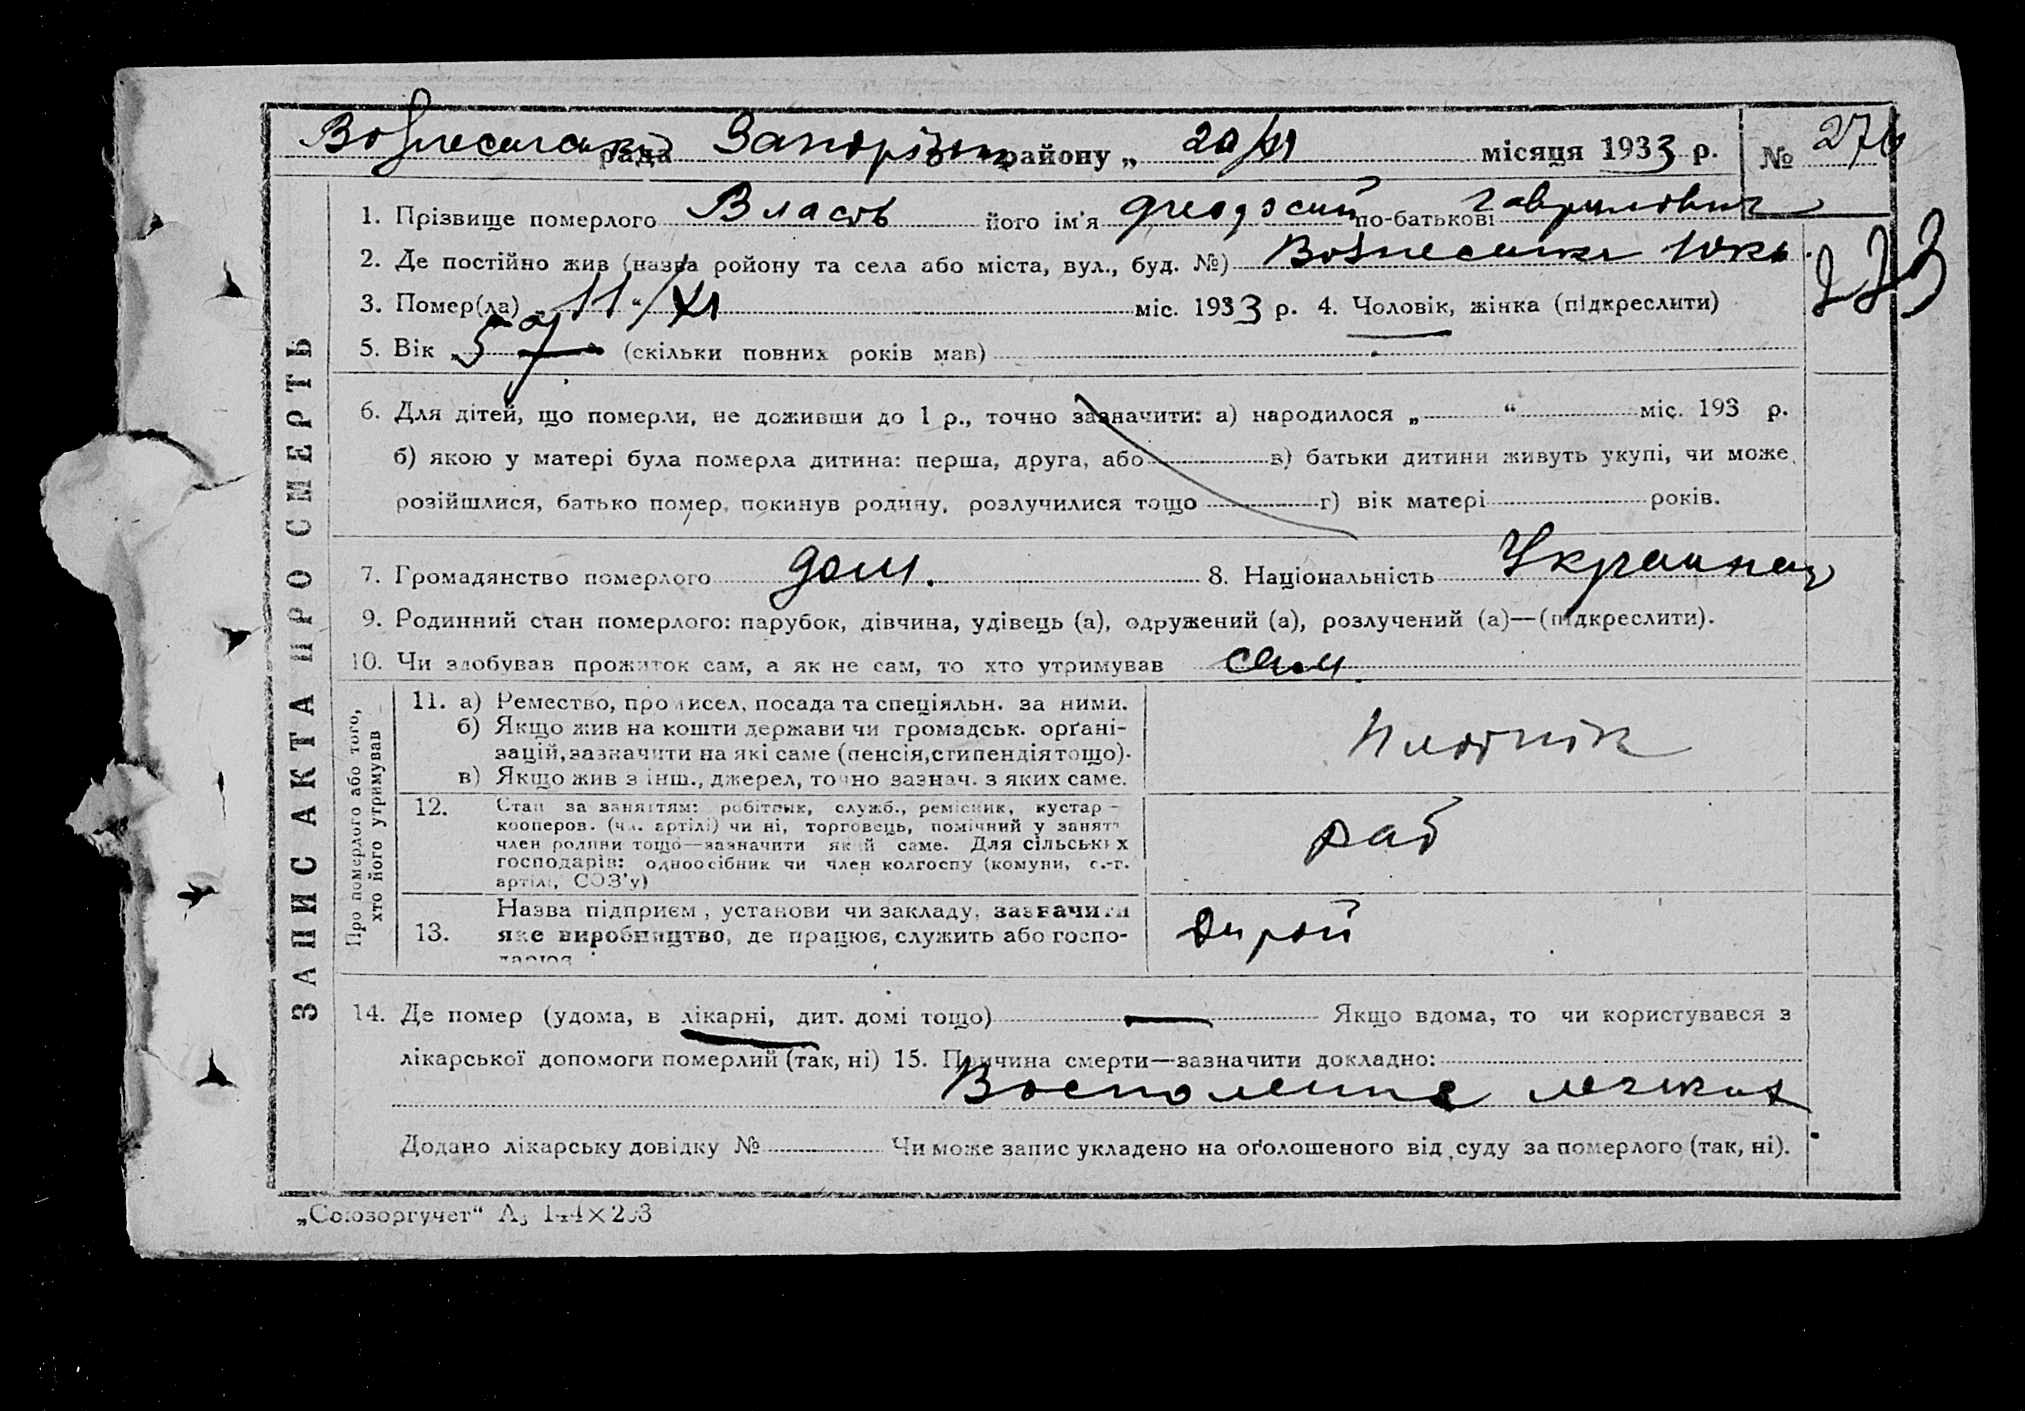 Вознесенська рада Запорізьк району „ 20/XI місяця 1933 р. № 276
1. Прізвище померлого Власов його ім'я Феодосий по-батькові Гаврилович
2. Де постійно жив (назва ройону та села або міста, вул., буд. №) Вознесенка
223
3. Помер(ла) „ 11 "/XI міс. 1933 р. 4. Чоловік, жінка (підкреслити)
5. Вік „ 57 (скільки повних років мав)
6. Для дітей, що померли, не доживши до 1 р., точно зазначити: а) народилося „ “ міс. 193 р.
б) якою у матері була померла дитина: перша, друга, або в) батьки дитини живуть укупі, чи може
розійшлися, батько помер, покинув родину, розлучилися тощо г) вік матері років.
7. Громадянство померлого 8. Національність Украинец
9. Родинний стан померлого: парубок, дівчина, удівець (а), одружений (а), розлучений (а)—(підкреслити).
10. Чи здобував прожиток сам, а як не сам, то хто утримував сам
ЗАПИС АКТА ПРО СМЕРТЬ
Про померлого або того, хто його утримував
11. а) Ремество, промисел, посада та спеціяльн. за ними.
б) Якщо жив на кошти держави чи громадськ. орґані-
зацій, зазначити на які саме (пенсія, стипендія тощо).
в) Якщо жив з інш., джерел, точно зазнач. з яких саме.
Плотнік
12. Стан за заняттям: робітник, служб., ремісник, кустар -
кооперов. (чл. артілі) чи ні, торговець, помічний у занятт
член родини тощо—зазначити який саме. Для сільських
господарів: одноосібник чи член колгоспу (комуни, с.-г.
артілі, СОЗ'у)
раб
13. Назва підприєм, установи чи закладу, зазначити
яке виробництво, де працює, служить або госпо-
дарює
14. Де помер (удома, в лікарні, дит. домі тощо) — Якщо вдома, то чи користувався з
лікарської допомоги померлий (так, ні) 15. Причина смерти—зазначити докладно:
Воспаление легких
Додано лікарську довідку № Чи може запис укладено на оґолошеного від суду за померлого (так, ні).
„Союзоргучет“ А5 144×203